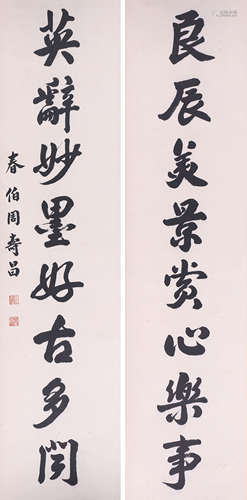 良辰美景賞心樂事
英辭妙墨好古多聞
春伯周壽昌